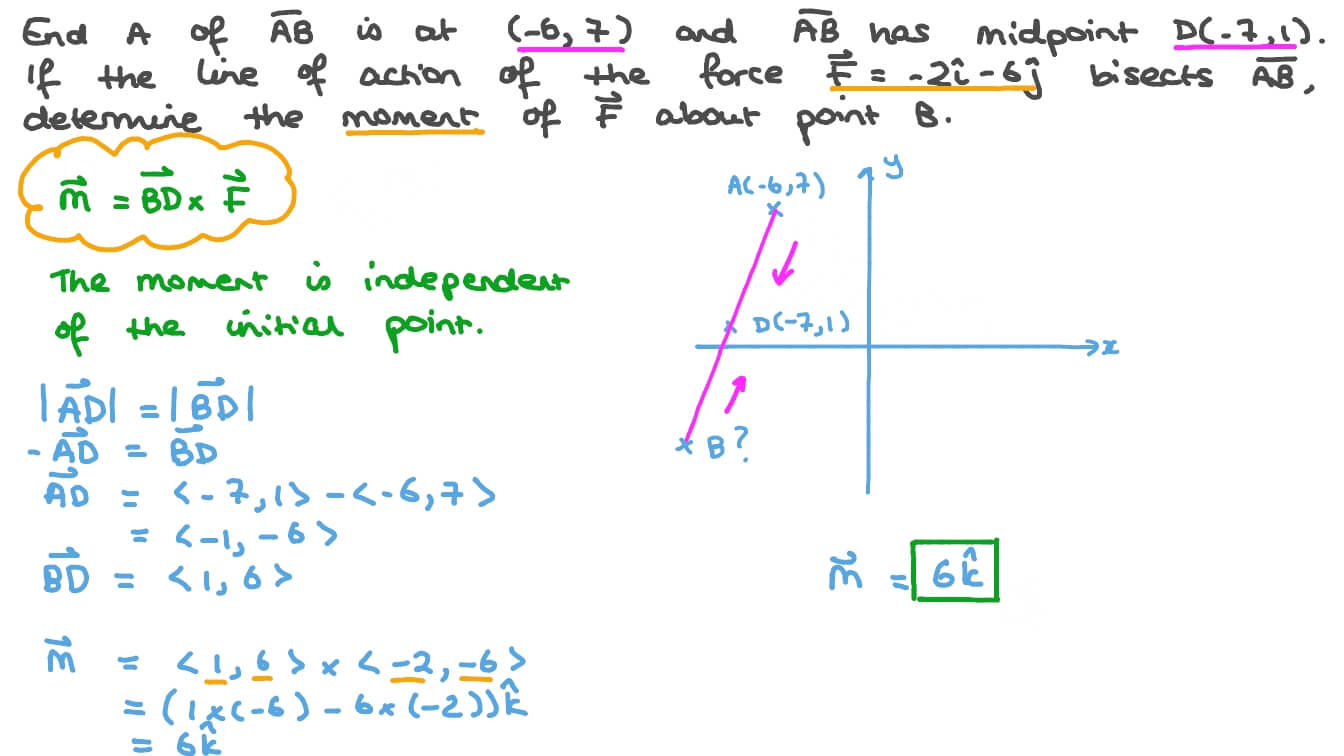 End A of A̅B̅ is at (-6, 7) and A̅B̅ has midpoint D(-7, 1).
If the line of action of the force F⃗ = -2î - 6ĵ bisects A̅B̅,
determine the moment of F⃗ about point B.
m⃗ = BD⃗ × F⃗
The moment is independent
of the initial point.
|AD⃗| = |BD⃗|
-AD⃗ = BD⃗
AD⃗ = <-7, 1> - <-6, 7>
= <-1, -6>
BD⃗ = <1, 6>
m⃗ = <1, 6> × <-2, -6>
= (1×(-6) - 6×(-2))k̂
= 6k̂
y
A(-6, 7)
D(-7, 1)
x
B?
m⃗ = 6k̂